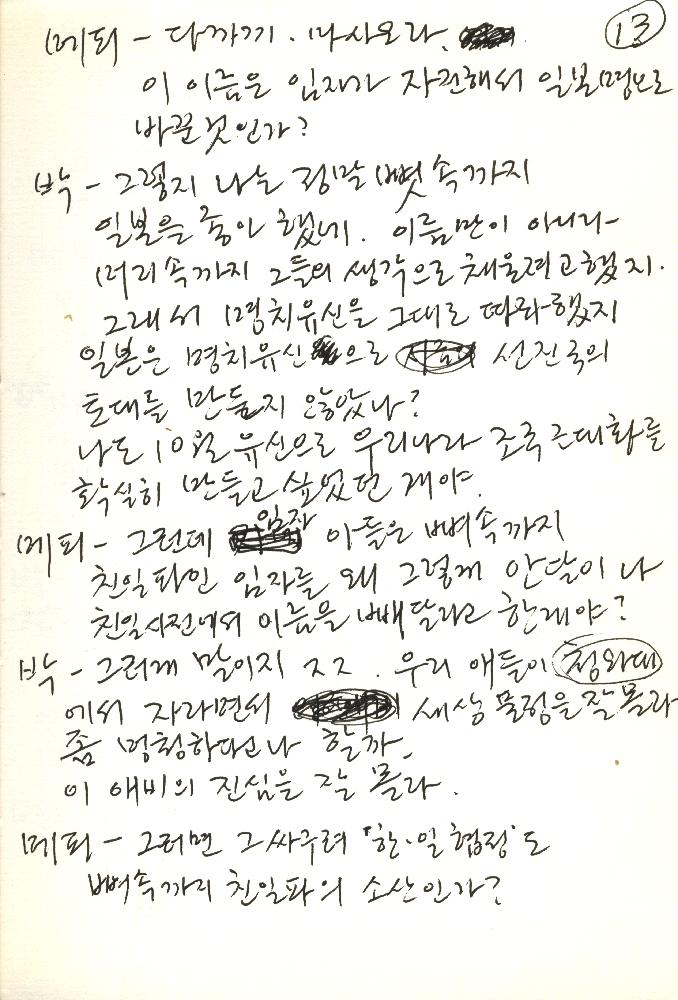 13
메피 - 다까끼. 마사오라.
이 이름은 임자가 자원해서 일본명으로
바꾼것인가?
박 - 그렇지 나는 정말 뼛속까지
일본을 좋아 했네. 이름만이 아니라
머리속까지 그들의 생각으로 채울려고했지.
그래서 명치유신을 그대로 따라했지
일본은 명치유신으로 선진국의
토대를 만들지 않았나?
나도 10월 유신으로 우리나라 조국근대화를
확실히 만들고 싶었던 게야.
메피 - 그런데 임자 아들은 뼈속까지
친일파인 임자를 왜 그렇게 안달이 나
친일사전에서 이름을 빼달라고 한게야?
박 - 그러게 말이지 ㅈㅈ. 우리 애들이 청와대
에서 자라면서 세상 물정을 잘 몰라
좀 멍청하다고나 할까
이 애비의 진심을 잘 몰라.
메피 - 그러면 그 싸구려 '한·일협정'도
뼈속까지 친일파의 소산인가?